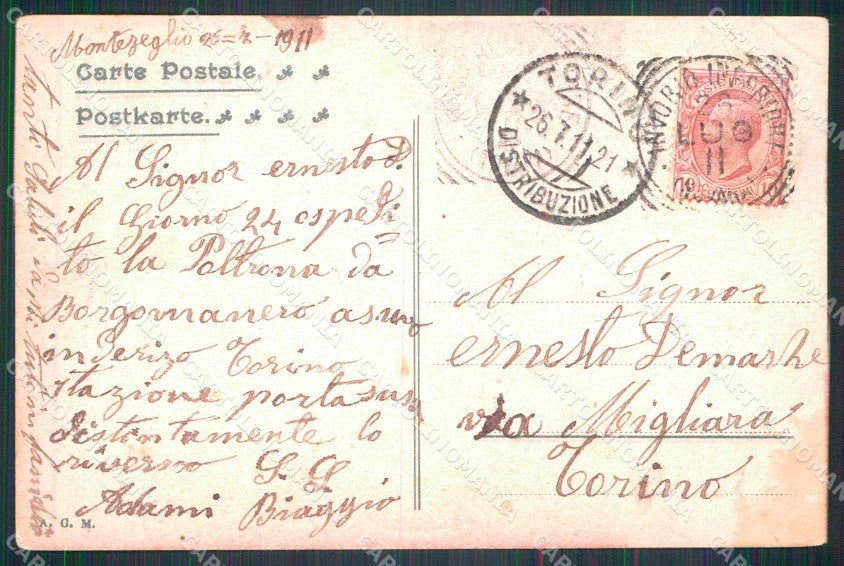 Montezeglio 26=7-1911
Carte Postale.
Postkarte.
Al Signor ernesto D.
il Giorno 24 ospedi
to la Poltrona da
Borgomanero asuvo
inderizo Torino
stazione porta susa
distintamente lo
riverso S. S
Adami Biaggio
A. G. M.
TORINO
26.7.11.21
DISTRIBUZIONE
INVORIO INFERIORE
LUG
11
Al Signor
ernesto Demarhe
via Migliara
Torino
CARTOLINOMANIA